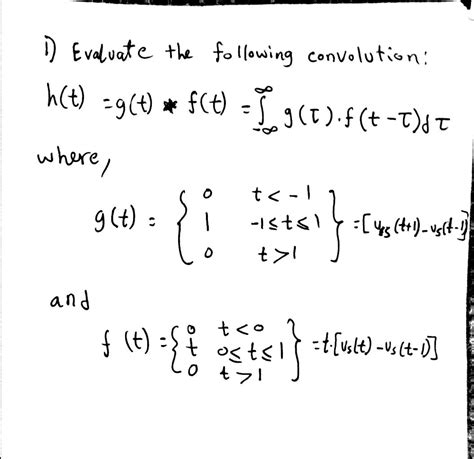 1) Evaluate the following convolution:
h(t) = g(t) * f(t) = ∫_{-∞}^{∞} g(τ).f(t-τ)dτ
where,
g(t) = { 0 t<-1
1 -1≤t≤1 } = [u_s(t+1)-u_s(t-1)]
0 t>1
and
f(t) = { 0 t<0
t 0≤t≤1 } = t.[u_s(t)-u_s(t-1)]
0 t>1